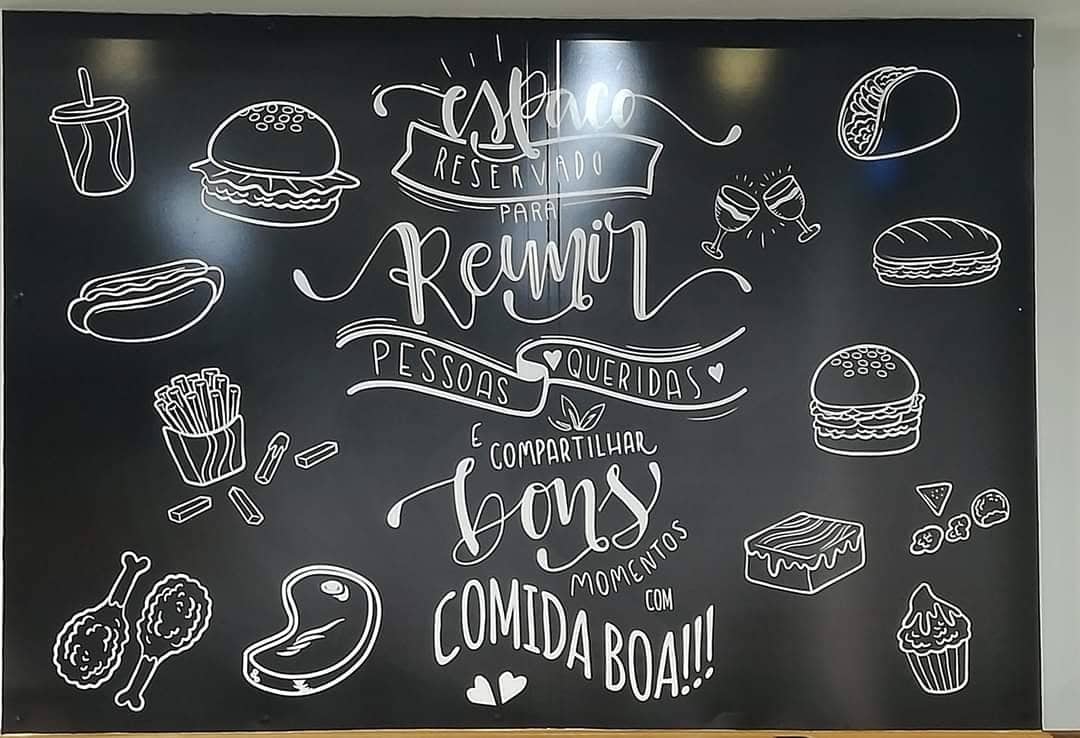 espaço
RESERVADO
PARA
Reunir
PESSOAS QUERIDAS
E COMPARTILHAR
bons
MOMENTOS
COM
COMIDA BOA!!!